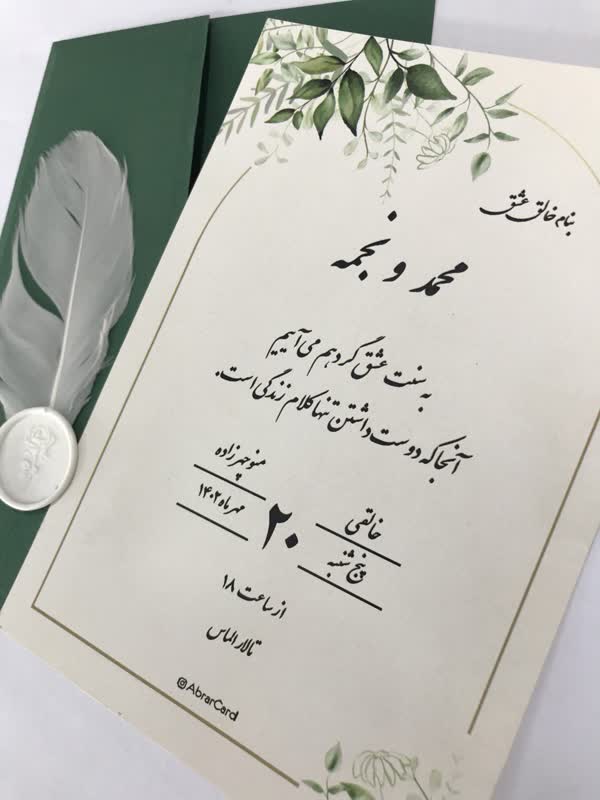 بنام خالق عشق
محمد و نجمه
به سنت عشق گرد هم می‌آییم
آنجا که دوست داشتن تنها کلام زندگی است.
خالقی
منوچهرزاده
پنج شنبه
۲۰
مهر ماه ۱۴۰۲
از ساعت ۱۸
تالار الماس
@AbrarCard